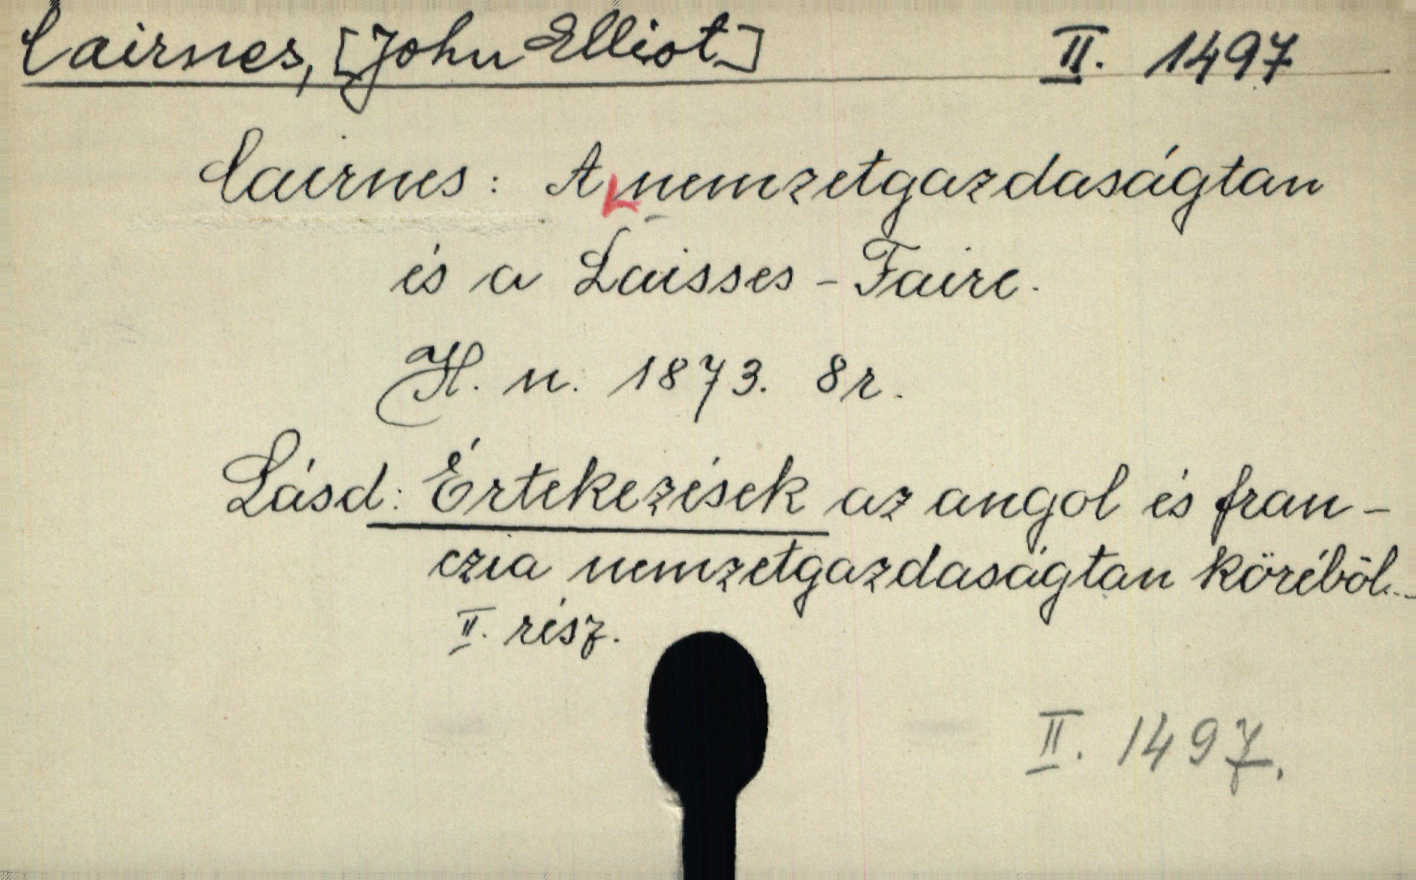 Cairnes, [John Elliot] II. 1497
Cairnes: A nemzetgazdaságtan
és a Laisses-Faire.
H. n. 1873. 8r.
Lásd: Értekezések az angol és fran-
czia nemzetgazdaságtan köréböl...
II. rész.
II. 1497.